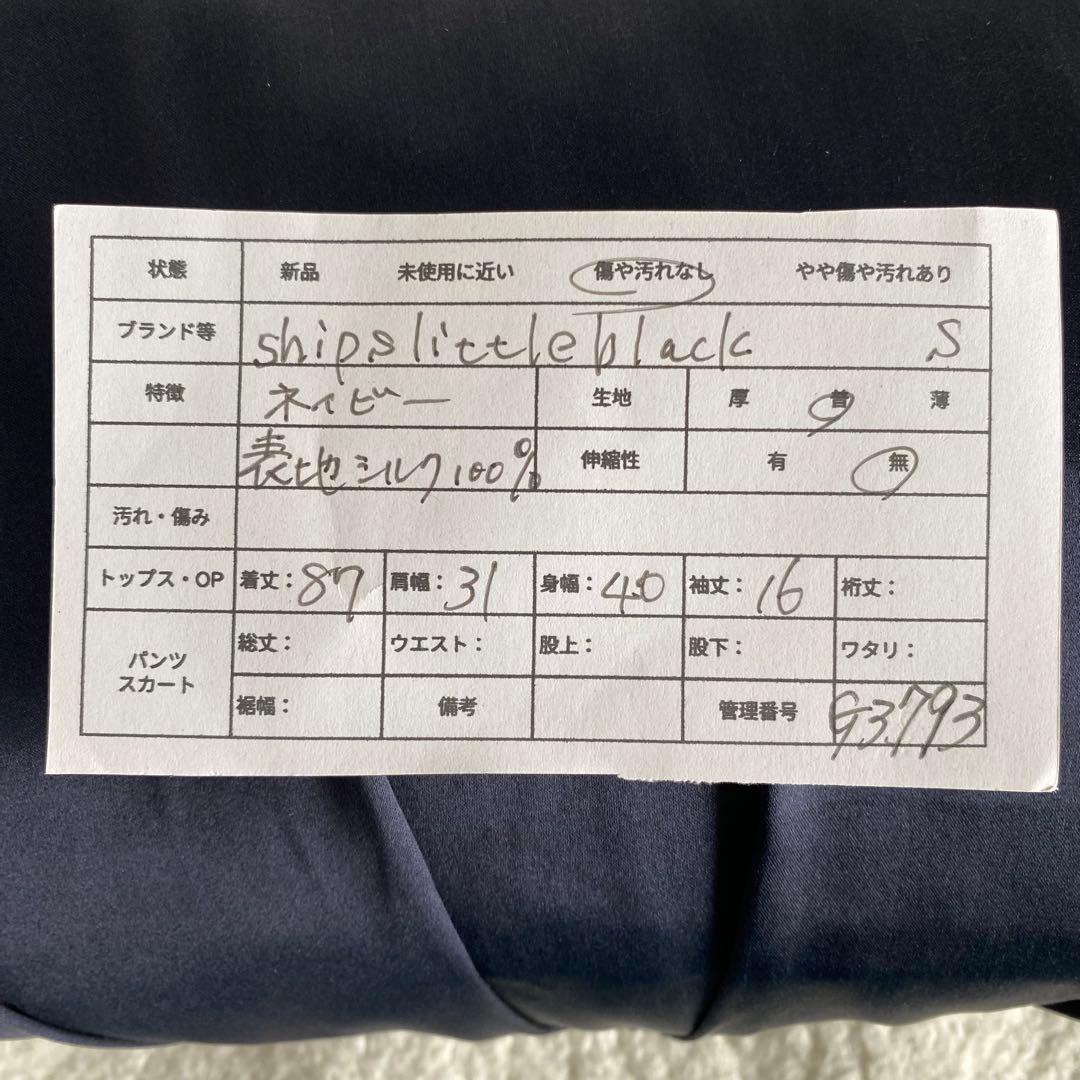 状態 新品 未使用に近い 傷や汚れなし やや傷や汚れあり
ブランド等 shipslittleblack S
特徴 ネイビー 生地 厚 普 薄
表地シルク100% 伸縮性 有 無
汚れ・傷み
トップス・OP 着丈：87 肩幅：31 身幅：40 袖丈：16 裄丈：
パンツ スカート 総丈： ウエスト： 股上： 股下： ワタリ：
裾幅： 備考 管理番号 G3.793